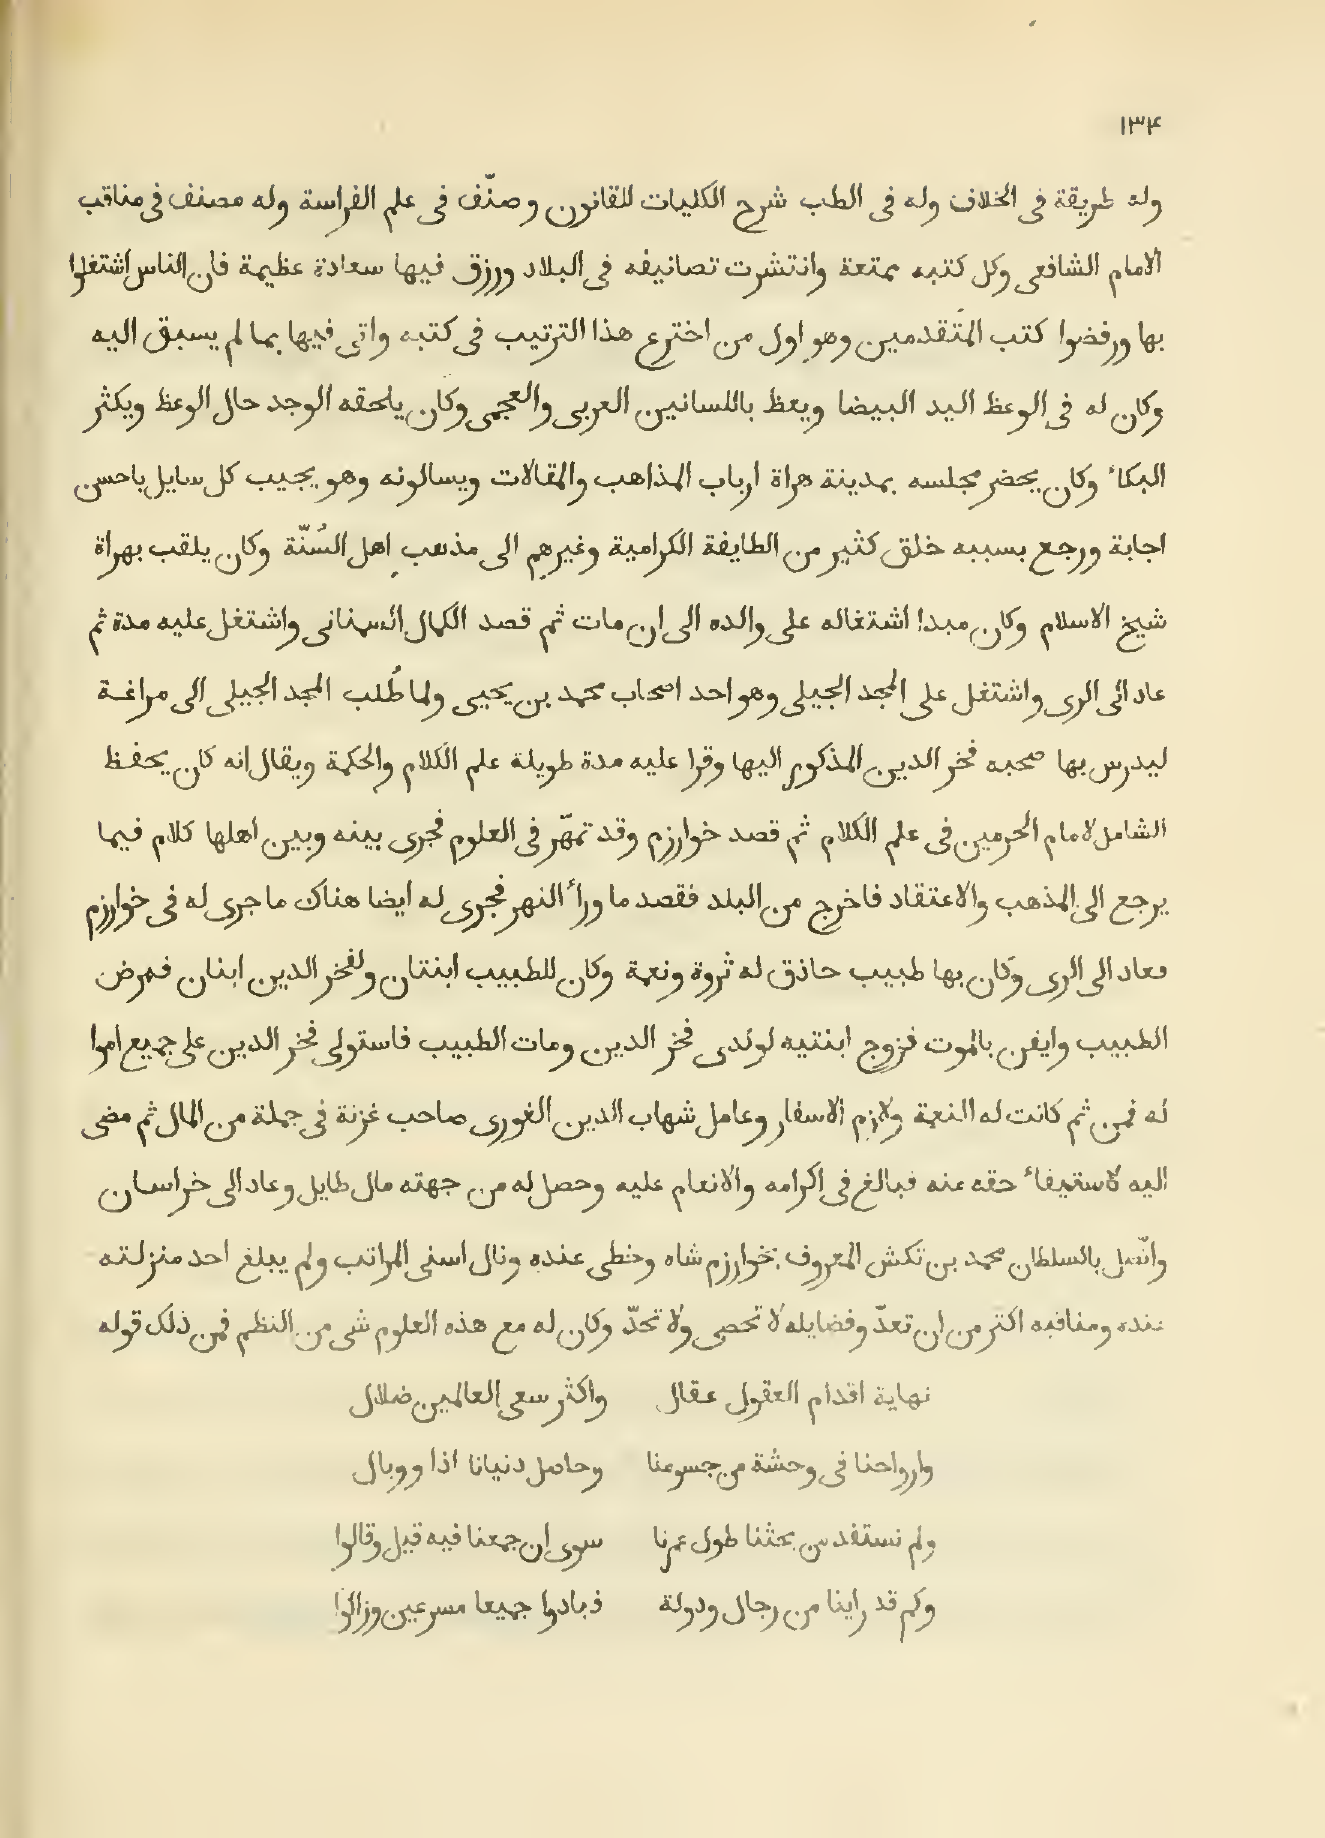 ١٣۴
وله طريقة فى الخلاف وله فى الطب شرح الكليات للقانون وصنّف فى علم الفراسة وله مصنف فى مناقب
الامام الشافعى وكل كتبه ممتعة وانتشرت تصانيفه فى البلاد ورزق فيها سعادة عظيمة فان الناس اشتغلوا
بها ورفضوا كتب المتقدمين وهو اول من اخترع هذا الترتيب فى كتبه واتى فيها بما لم يسبق اليه
وكان له فى الوعظ اليد البيضا ويعظ باللسانين العربى والعجمى وكان يلحقه الوجد حال الوعظ ويكثر
البكاء وكان يحضر مجلسه بمدينة هراة ارباب المذاهب والمقالات ويسالونه وهو يجيب كل سايل باحسن
اجابة ورجع بسببه خلق كثير من الطايفة الكرامية وغيرهم الى مذهب اهل السُنّة وكان يلقب بهراة
شيخ الاسلام وكان مبدا اشتغاله على والده الى ان مات ثم قصد الكمال السمنانى واشتغل عليه مدة ثم
عاد الى الرى واشتغل على المجد الجيلى وهو احد اصحاب محمد بن يحيى ولما طُلب المجد الجيلى الى مراغة
ليدرس بها صحبه فخر الدين المذكور اليها وقرا عليه مدة طويلة علم الكلام والحكمة ويقال انه كان يحفظ
الشامل لامام الحرمين فى علم الكلام ثم قصد خوارزم وقد تمهّر فى العلوم فجرى بينه وبين اهلها كلام فيما
يرجع الى المذهب والاعتقاد فاخرج من البلد فقصد ما وراء النهر فجرى له ايضا هناك ما جرى له فى خوارزم
فعاد الى الرى وكان بها طبيب حاذق له ثروة ونعمة وكان للطبيب ابنتان ولفخر الدين ابنان فمرض
الطبيب وايقن بالموت فزوج ابنتيه لولدى فخر الدين ومات الطبيب فاستولى فخر الدين على جميع اموا
له فمن ثم كانت له النعمة ولازم الاسفار وعامل شهاب الدين الغورى صاحب غزنة فى جملة من المال ثم مضى
اليه لاستيفاء حقه عنه فبالغ فى اكرامه والانعام عليه وحصل له من جهته مال طايل وعاد الى خراسان
واتّصل بالسلطان محمد بن تكش المعروف بخوارزم شاه وحظى عنده ونال اسنى المراتب ولم يبلغ احد منزلته
عنده ومناقبه اكثر من ان تعدّ وفضايله لا تحصى ولا تحدّ وكان له مع هذه العلوم شى من النظم فمن ذلك قوله
نهاية اقدام العقول عقال واكثر سعى العالمين ضلال
وارواحنا فى وحشة من جسومنا وحاصل دنيانا اذا ووبال
ولم نستفد من بحثنا طول عمرنا سوى ان جمعنا فيه قيل وقالوا
وكم قد راينا من رجال ودولة فبادوا جميعا مسرعين وزالوا